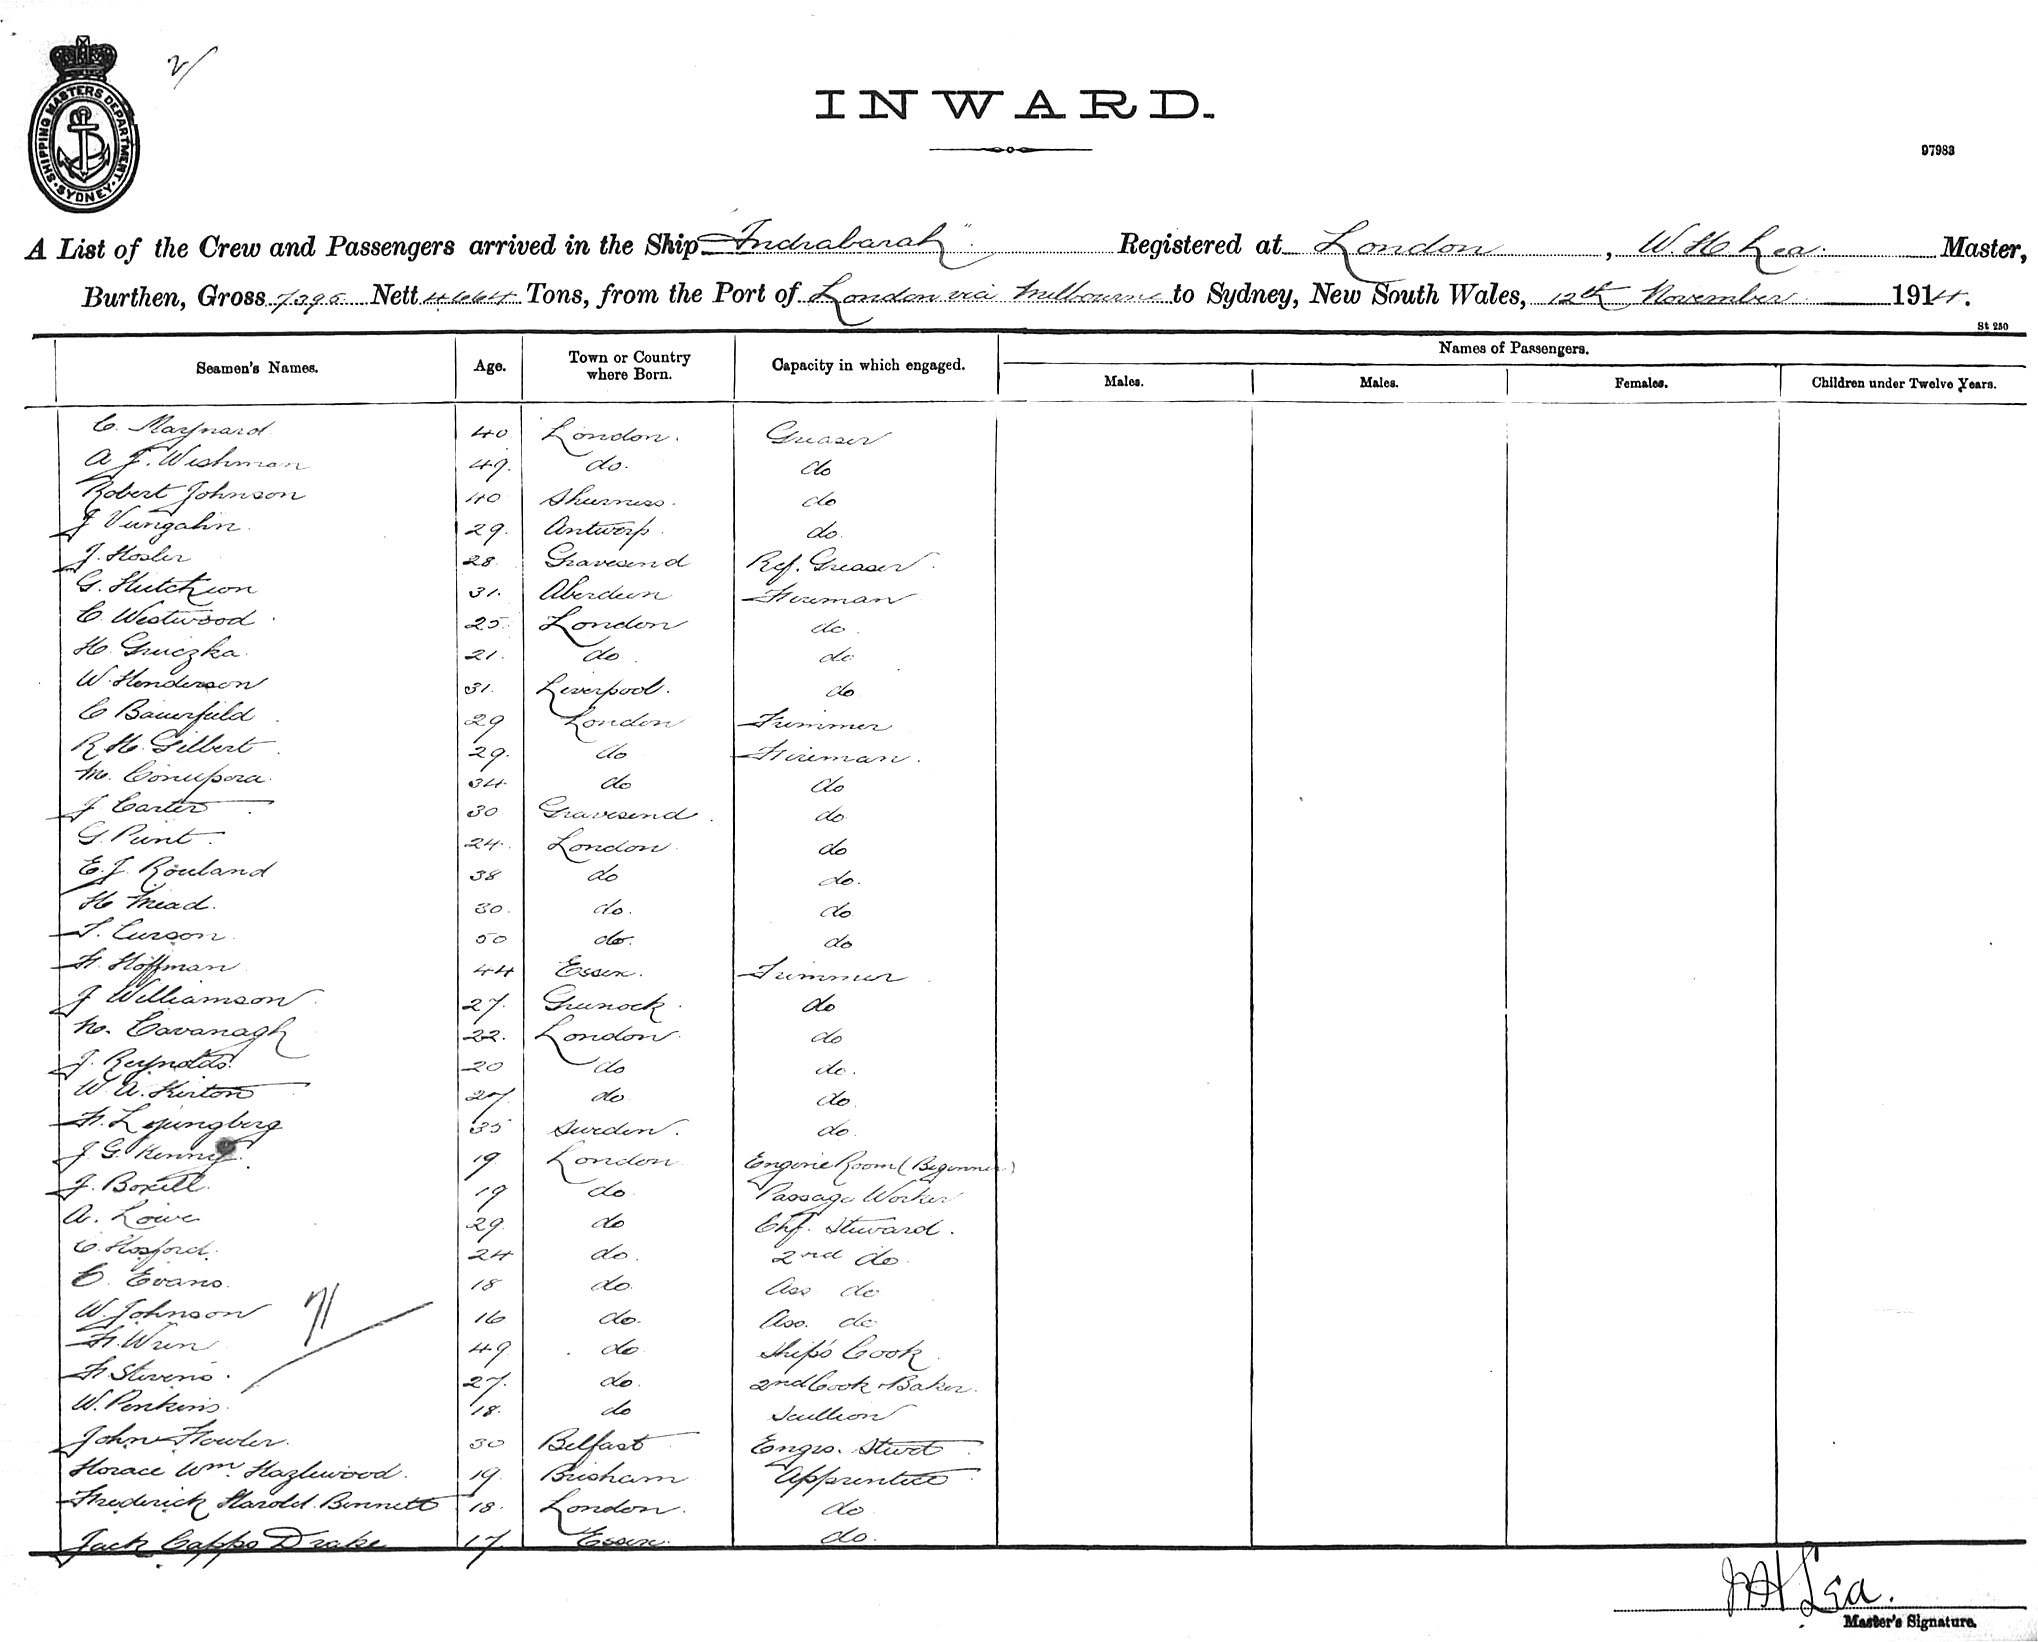 2/
SHIPPING MASTERS DEPARTMENT
SYDNEY
INWARD.
97983
A List of the Crew and Passengers arrived in the Ship "Indrabarah" Registered at London, W. H. Lea. Master,
Burthen, Gross 7395 Nett 4664 Tons, from the Port of London via Melbourne to Sydney, New South Wales, 12th November 1914.
St 250
Seamen's Names. Age. Town or Country where Born. Capacity in which engaged. Names of Passengers.
Males. Males. Females. Children under Twelve Years.
C. Maynard 40 London. Greaser
A J. Wishman 49. do. do
Robert Johnson 40 Sheerness. do
J 29. Antwerp. do.
J. Hosler 28 Gravesend Ref. Greaser.
G. Hutcheon 31. Aberdeen Fireman
C. Westwood 25 London do.
H. Gruczka. 21. do. do
W. Henderson 31. Liverpool. do
C Bauerfeld 29 London Trimmer
R. H. Gilbert 29. do Fireman.
M. 34. do do
J Carter 30 Gravesend. do.
G. Punt. 24. London. do
E. J. Rowland 38 do do.
H Mead. 30. do. do
T. Curson 50 do. do
F. Hoffman 44 Essex. Trimmer
J Williamson 27. Greenock. do
N. Cavanagh 22. London. do
J. Reynolds. 20 do do.
W. A. Kirton 27. do do.
F. Ljungberg 35 Sweden. do.
J G. Kenny. 19 London Engine Room (Beginner)
J. Boxell. 19 do Passage Worker
A. Lowe 29. do Chf. Steward.
C. Hosford. 24 do. 2nd do.
C. Evans. 18 do. Ass do
W. Johnson 16 do. Ass. do
F. Wren 49 do Ship's Cook.
F. Stevens. 27. do. 2nd Cook & Baker.
W. Perkins. 18. do Scullion
John Fowler. 30 Belfast Engrs. Stwd.
Horace Wm. Hazlewood. 19. Brisham Apprentice
Frederick Harold Bennett 18. London. do
Jack Capps Drake 17 Essex. do.
71
W H Lea.
Master's Signature.